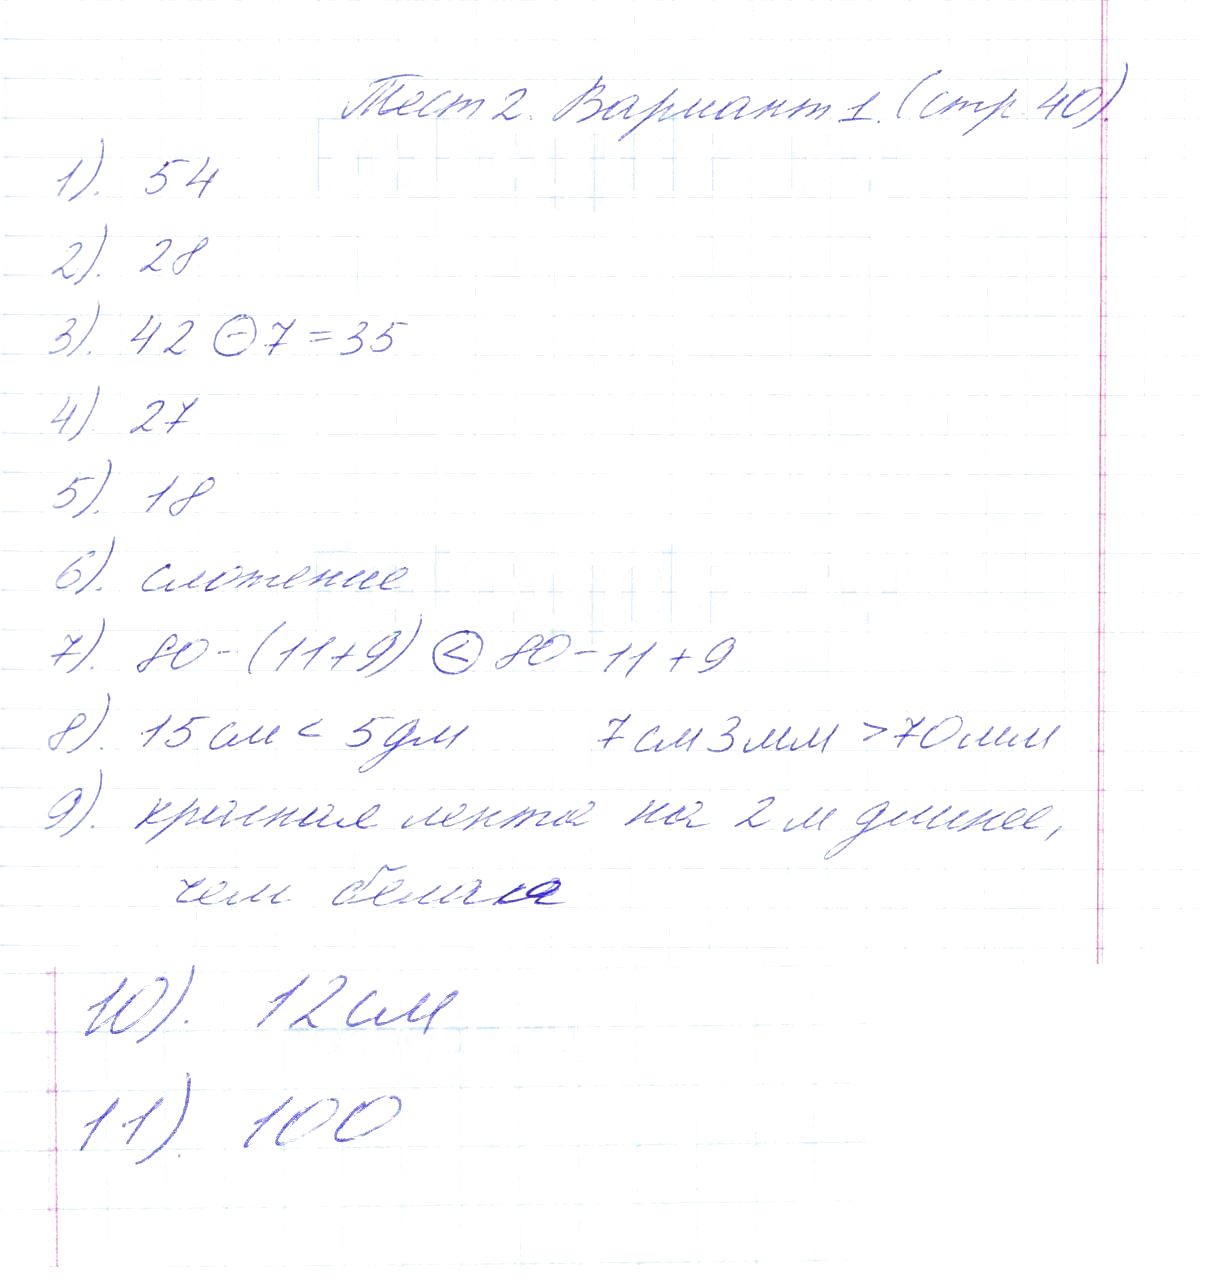 Тест 2. Вариант 1. (стр. 40)
1). 54
2). 28
3). 42 ⊖ 7 = 35
4) 27
5). 18
6). сложение
7). 80 - (11 + 9) < 80 - 11 + 9
8). 15 см < 5 дм 7 см 3 мм > 70 мм
9). красная лента на 2 м длинее,
чем белая
10). 12 см
11). 100